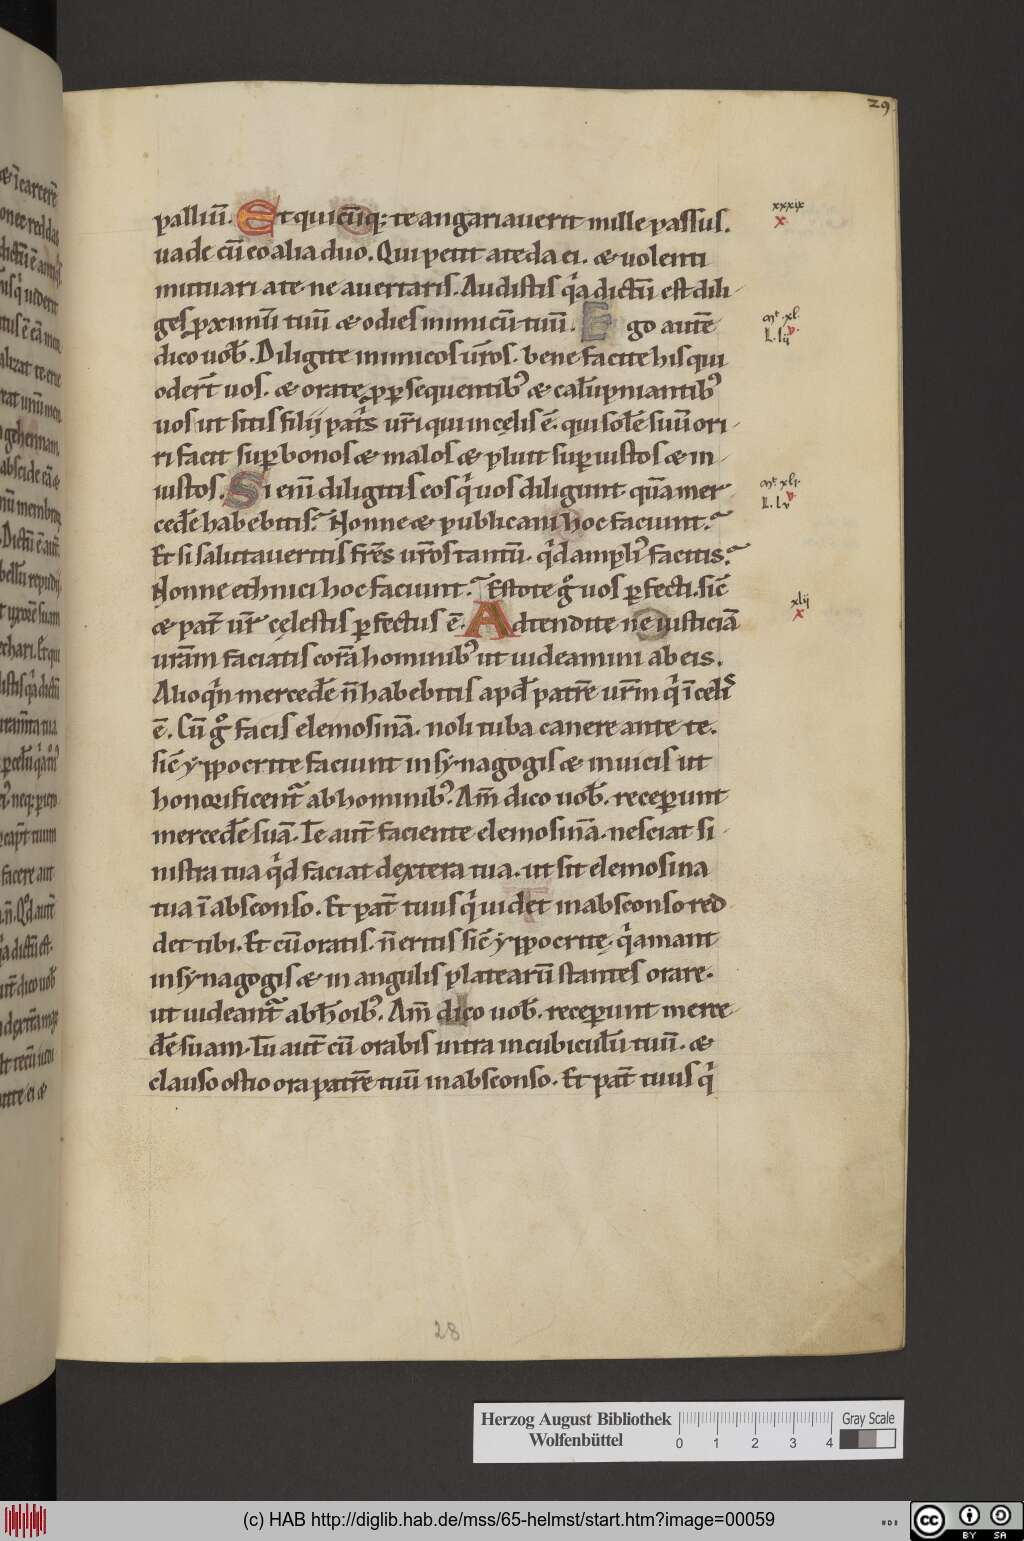 29
palliū. Et quicūq; te angariauerit mille passus.
uade cū eo alia duo. Qui petit a te da ei. & uolenti
mutuari a te ne auertaris. Audistis q̇a dictū est dili-
ges p̱ximū tuū & odies inimicū tuū. Ego autē
dico uob̄. Diligite inimicos ūr̄os. bene facite his qui
oder̄t uos. & orate p̱ p̱sequentib' & calūpniantib'
uos ut sitis filij pat̄s ur̄i qui in cęlis ē. qui solē suū ori-
ri facit sup̱ bonos & malos & pluit sup̱ iustos & in-
iustos. Si eni̅ diligitis eos q̇ uos diligunt. quā mer-
cedē habebitis? Nonne & publicani hoc faciunt?
Et si salutaueritis fr̄es ur̄os tantū. q̇d ampli' facitis?
Nonne ethnici hoc faciunt? Estote g̊ uos p̱fecti. sic̄
& pat̄ ur̄ cęlestis p̱fectus ē. Adtendite ne iusticiā
urām faciatis corā hominib' ut uideamini ab eis.
Alioq̇n mercedē n̄ habebitis apd̄ patrē ur̄m q̇ ī celis
ē. Cū g̊ facis elemosinā. noli tuba canere ante te.
sic̄ yppocrite faciunt in synagogis & in uicis ut
honorificent̃ ab hominib'. Am̄ dico uob̄. receperunt
mercedē suā. Te aut̄ faciente elemosinā. nesciat si-
nistra tua q̇d faciat dextera tua. ut sit elemosina
tua ī absconso. Et pat̄ tuus q̇ uidet in absconso red
det tibi. Et cū oratis. n̄ eritis sic̄ yppocritę. q̇ amant
in synagogis & in angulis platearū stantes orare.
ut uideant̃ ab hoīb'. Am̄ dico uob̄. receperunt merce-
dē suam. Tu aut̄ cū orabis intra in cubiculū tuū. &
clauso ostio ora patrē tuū in absconso. Et pat̄ tuus q̇
xxxix
x
mt. xl
v.
L. lij
mt. xli.
v.
L. lv
xlij
x
28
Herzog August Bibliothek
Wolfenbüttel
0 1 2 3 4
Gray Scale
(c) HAB http://diglib.hab.de/mss/65-helmst/start.htm?image=00059
cc BY SA